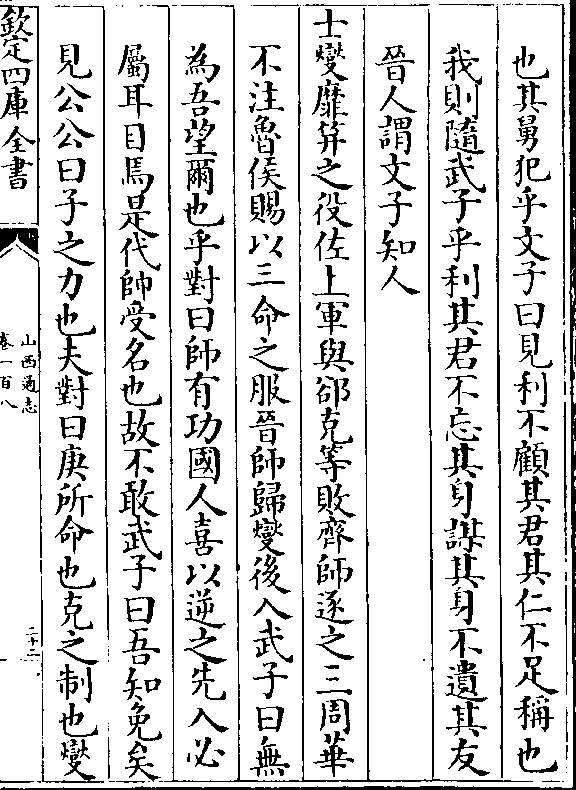 也其舅犯乎文子曰見利不顧其君其仁不足稱也
我則隨武子乎利其君不忘其身謀其身不遺其友
晉人謂文子知人
士燮靡笄之役佐上軍與郤克等敗齊師逐之三周華
不注魯侯賜以三命之服晉師歸燮後入武子曰無
為吾望爾也乎對曰師有功國人喜以逆之先入必
屬耳目焉是代帥受名也故不敢武子曰吾知免矣
見公公曰子之力也夫對曰庚所命也克之制也燮
欽定四庫全書
山西通志
卷一百八
二十二